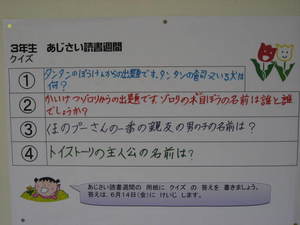 3年生 あじさい読書週間
クイズ
① タンタンのぼうけんからの出題です。タンタンの飼っている犬は
何?
② かいけつゾロリからの出題です。ゾロリの相ぼうの名前は誰と誰
でしょうか?
③ くまのプーさんの一番の親友の男の子の名前は?
④ トイストーリの主人公の名前は?
あじさい読書週間の 用紙に クイズ の 答えを 書きましょう。
答えは、6月14日(金)に けいじ します。